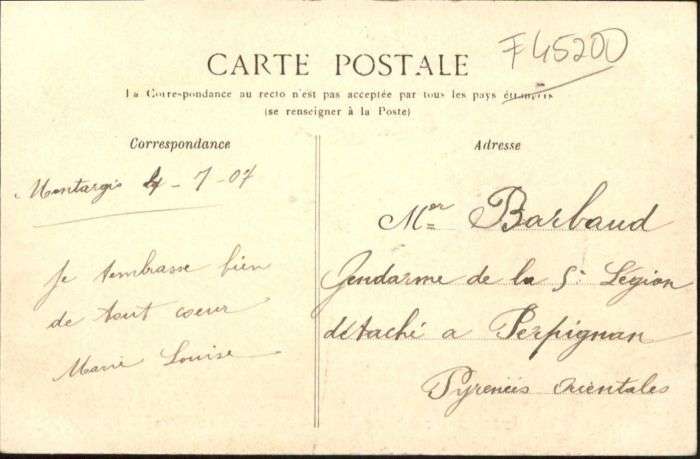 F45200
CARTE POSTALE
La Correspondance au recto n'est pas acceptée par tous les pays étrangers
(se renseigner à la Poste)
Correspondance
Adresse
Montargis - 7 - 07
Je tembrasse bien
de tout coeur
Marie Louise
Mer Barbaud
Gendarme de la 5e Légion
détaché a Perpignan
Pyrenées Orientales